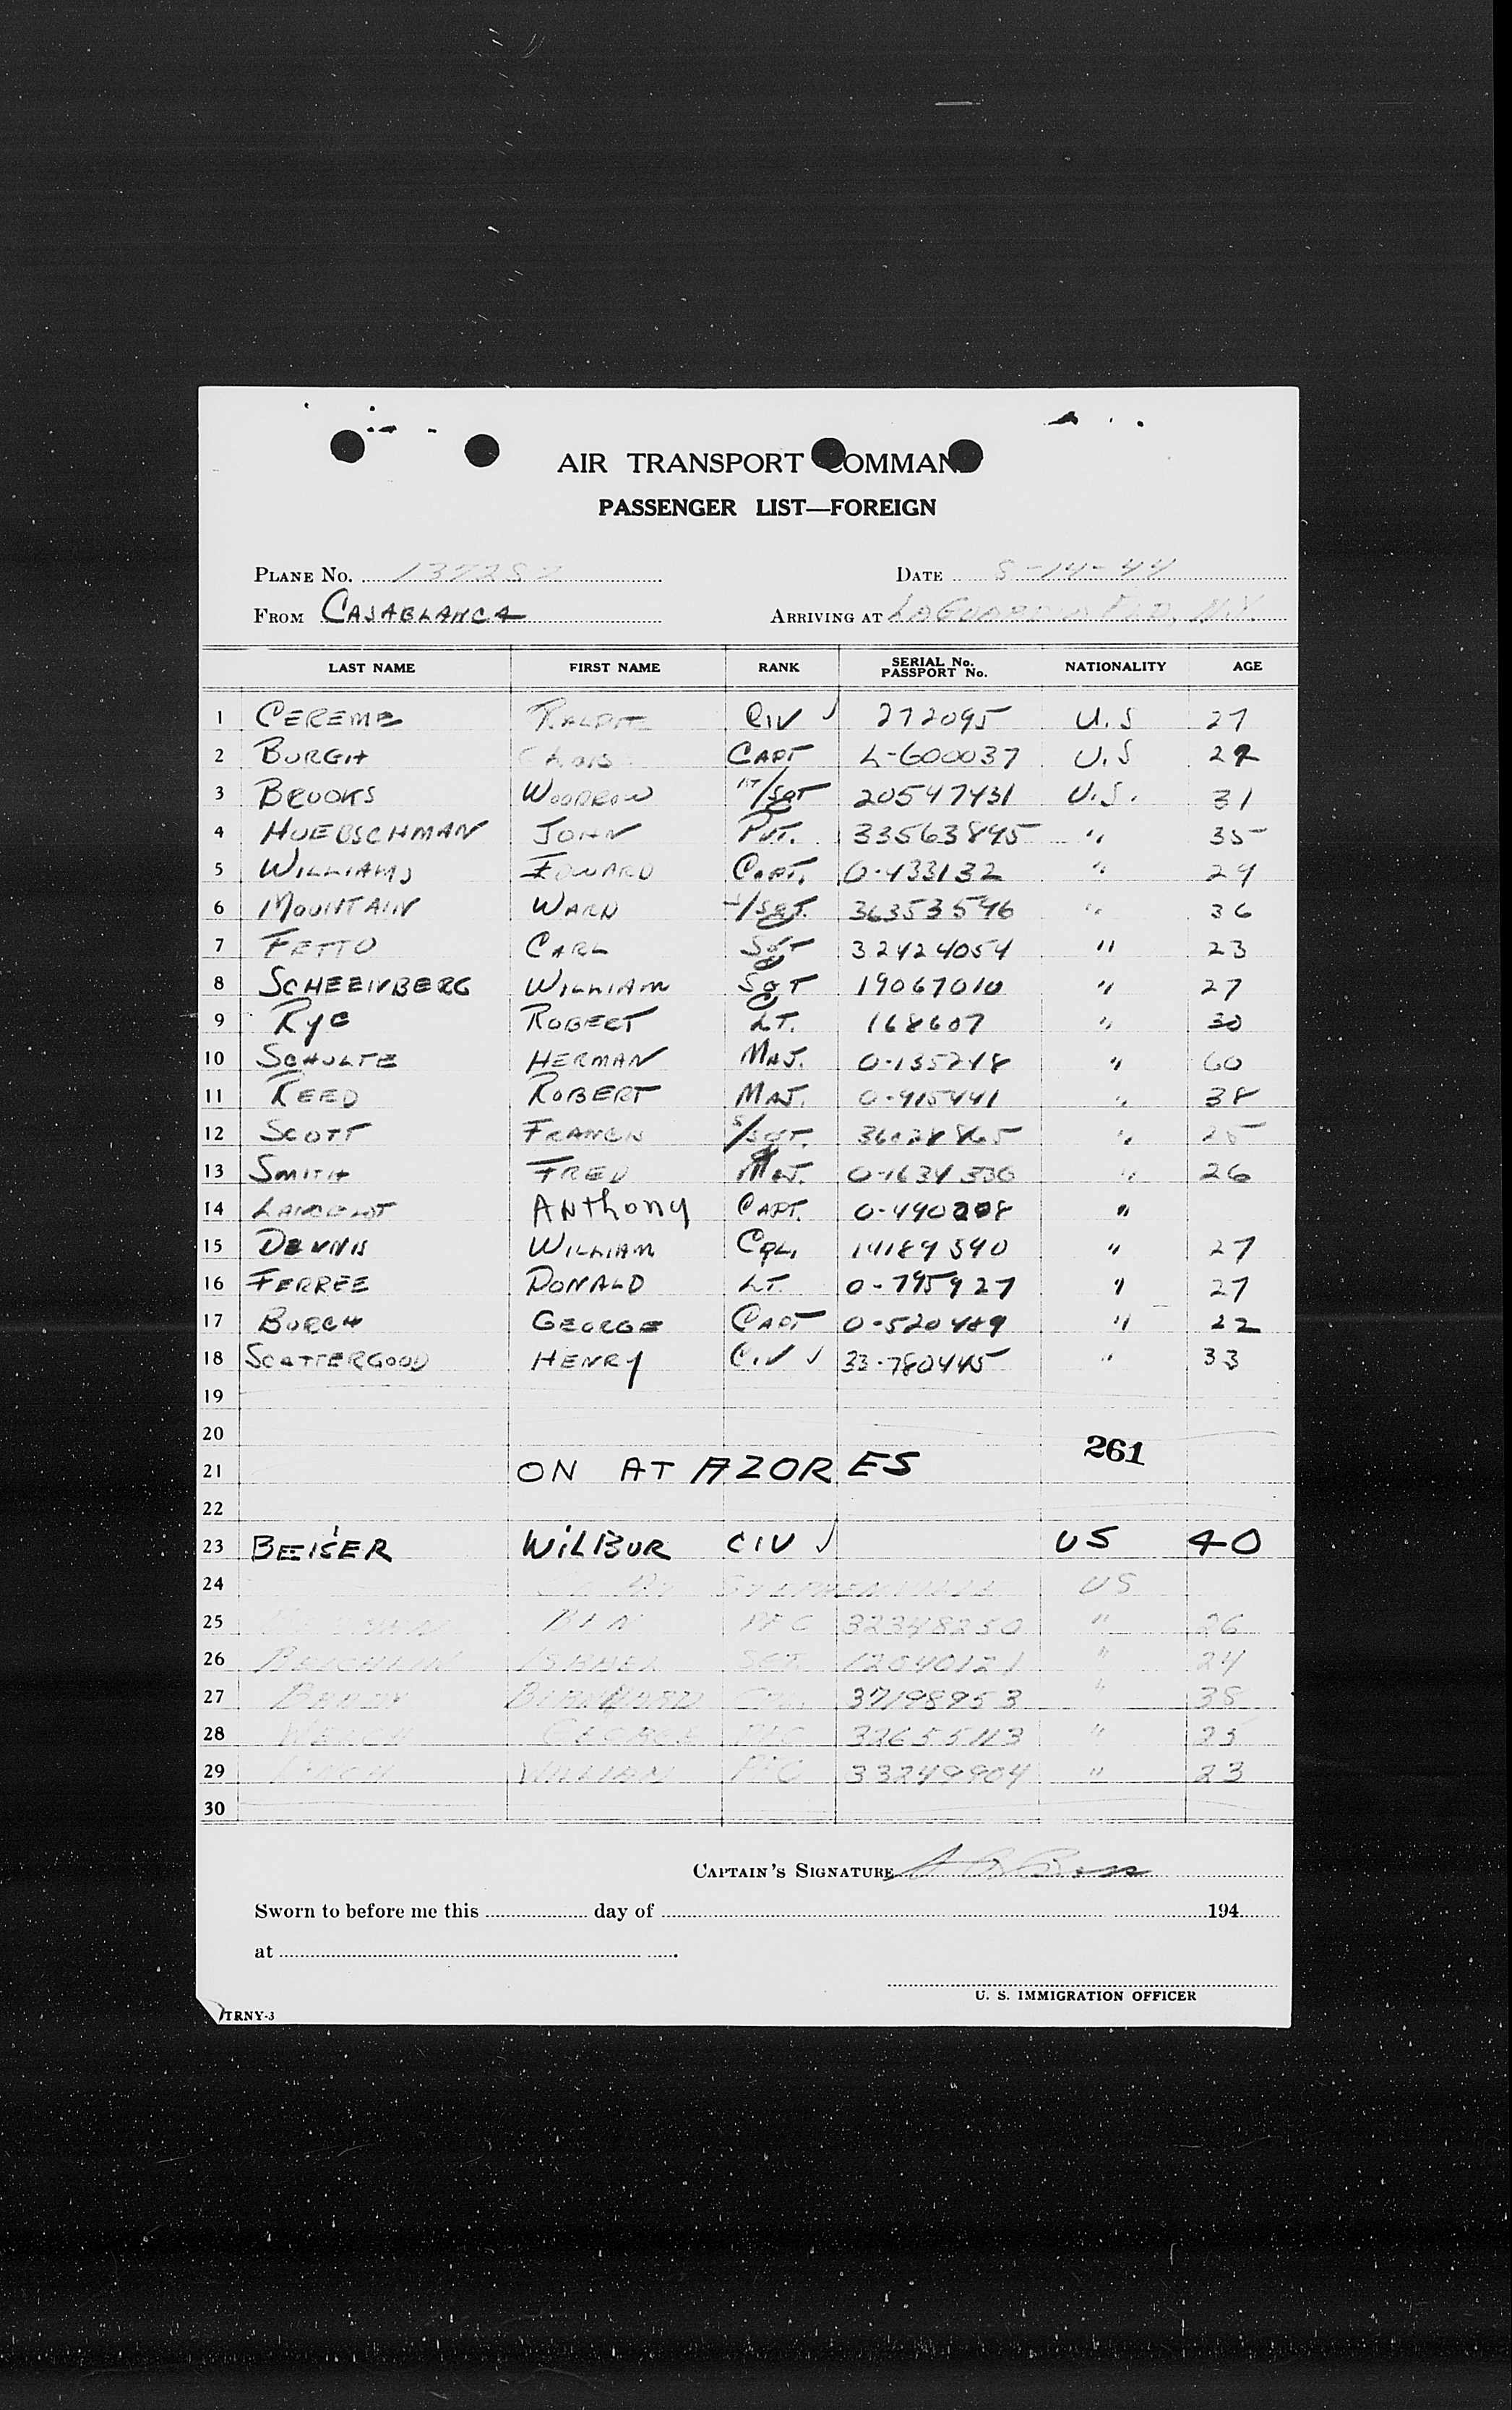 AIR TRANSPORT COMMAND
PASSENGER LIST—FOREIGN
PLANE No. DATE 8-14-44
FROM CASABLANCA ARRIVING AT LAGUARDIA FLD, N.Y.
LAST NAME FIRST NAME RANK SERIAL No. PASSPORT No. NATIONALITY AGE
1 CEREME RALPH CIV ✓ 272095 U.S 27
2 BURGH CAPT L-600037 U.S
3 BROOKS WOODROW 1ST/SGT 20547431 U.S. 31
4 HUEBSCHMAN JOHN PVT. 33563895 " 35
5 WILLIAMS EDWARD CAPT. O-433132 " 29
6 MOUNTAIN WARN /SGT. 36353596 " 36
7 FETTO CARL SGT 32424054 " 23
8 SCHEEINBERG WILLIAM SGT 19067010 " 27
9 RYC ROBERT LT. 168607 " 30
10 SCHULTE HERMAN MAJ. O-135248 " 60
11 REED ROBERT MAJ. O-915441 " 38
12 SCOTT FRANCIS S/SGT. 36028865 " 25
13 SMITH FRED O-1634330 " 26
14 ANthony CAPT. "
15 DENNIS WILLIAM CPL. 14189590 " 27
16 FERREE DONALD LT. O-795927 " 27
17 BURCH GEORGE CAPT O-520489 " 22
18 SCATTERGOOD HENRY CIV ✓ 33-780445 " 33
19
20 261
21 ON AT AZORES
22
23 BEISER WILBUR CIV ✓ US 40
24 US
25 BEN PFC 32348250 " 26
26 SGT. 12040121 " 24
27 BERNHARD 37198953 " 38
28 WELCH GEORGE PFC 32655113 " 25
29 WILLIAM PFC 33249904 " 23
30
CAPTAIN'S SIGNATURE
Sworn to before me this day of 194
at
U. S. IMMIGRATION OFFICER
TRNY-3